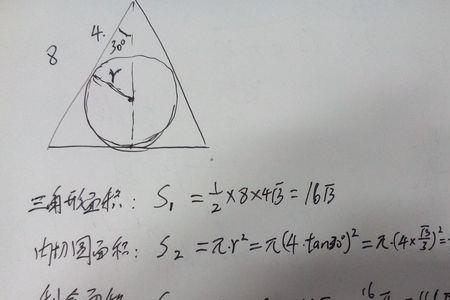 4.
30°
8
r
三角形面积: S₁ = 1/2 × 8 × 4√3 = 16√3
内切圆面积: S₂ = π·r² = π(4·tan30°)² = π·(4×√3/3)² =